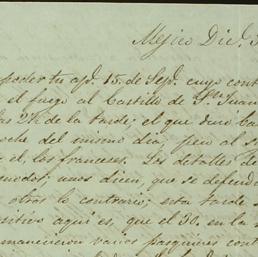 Mejico Dic.
poder tu ap. 15. de Sep. cuyo cont
el fuego al Castillo de S. Juan
las 2½ de la tarde; el que duro ha
oche del mismo dia, pero al s
el, los franceses. Los detalles de
modos; unos dicen, que se defendi
otros lo contrario; esta tarde s
sitivo aqui es, que el 30. en la
manecieron varios pasquines cont